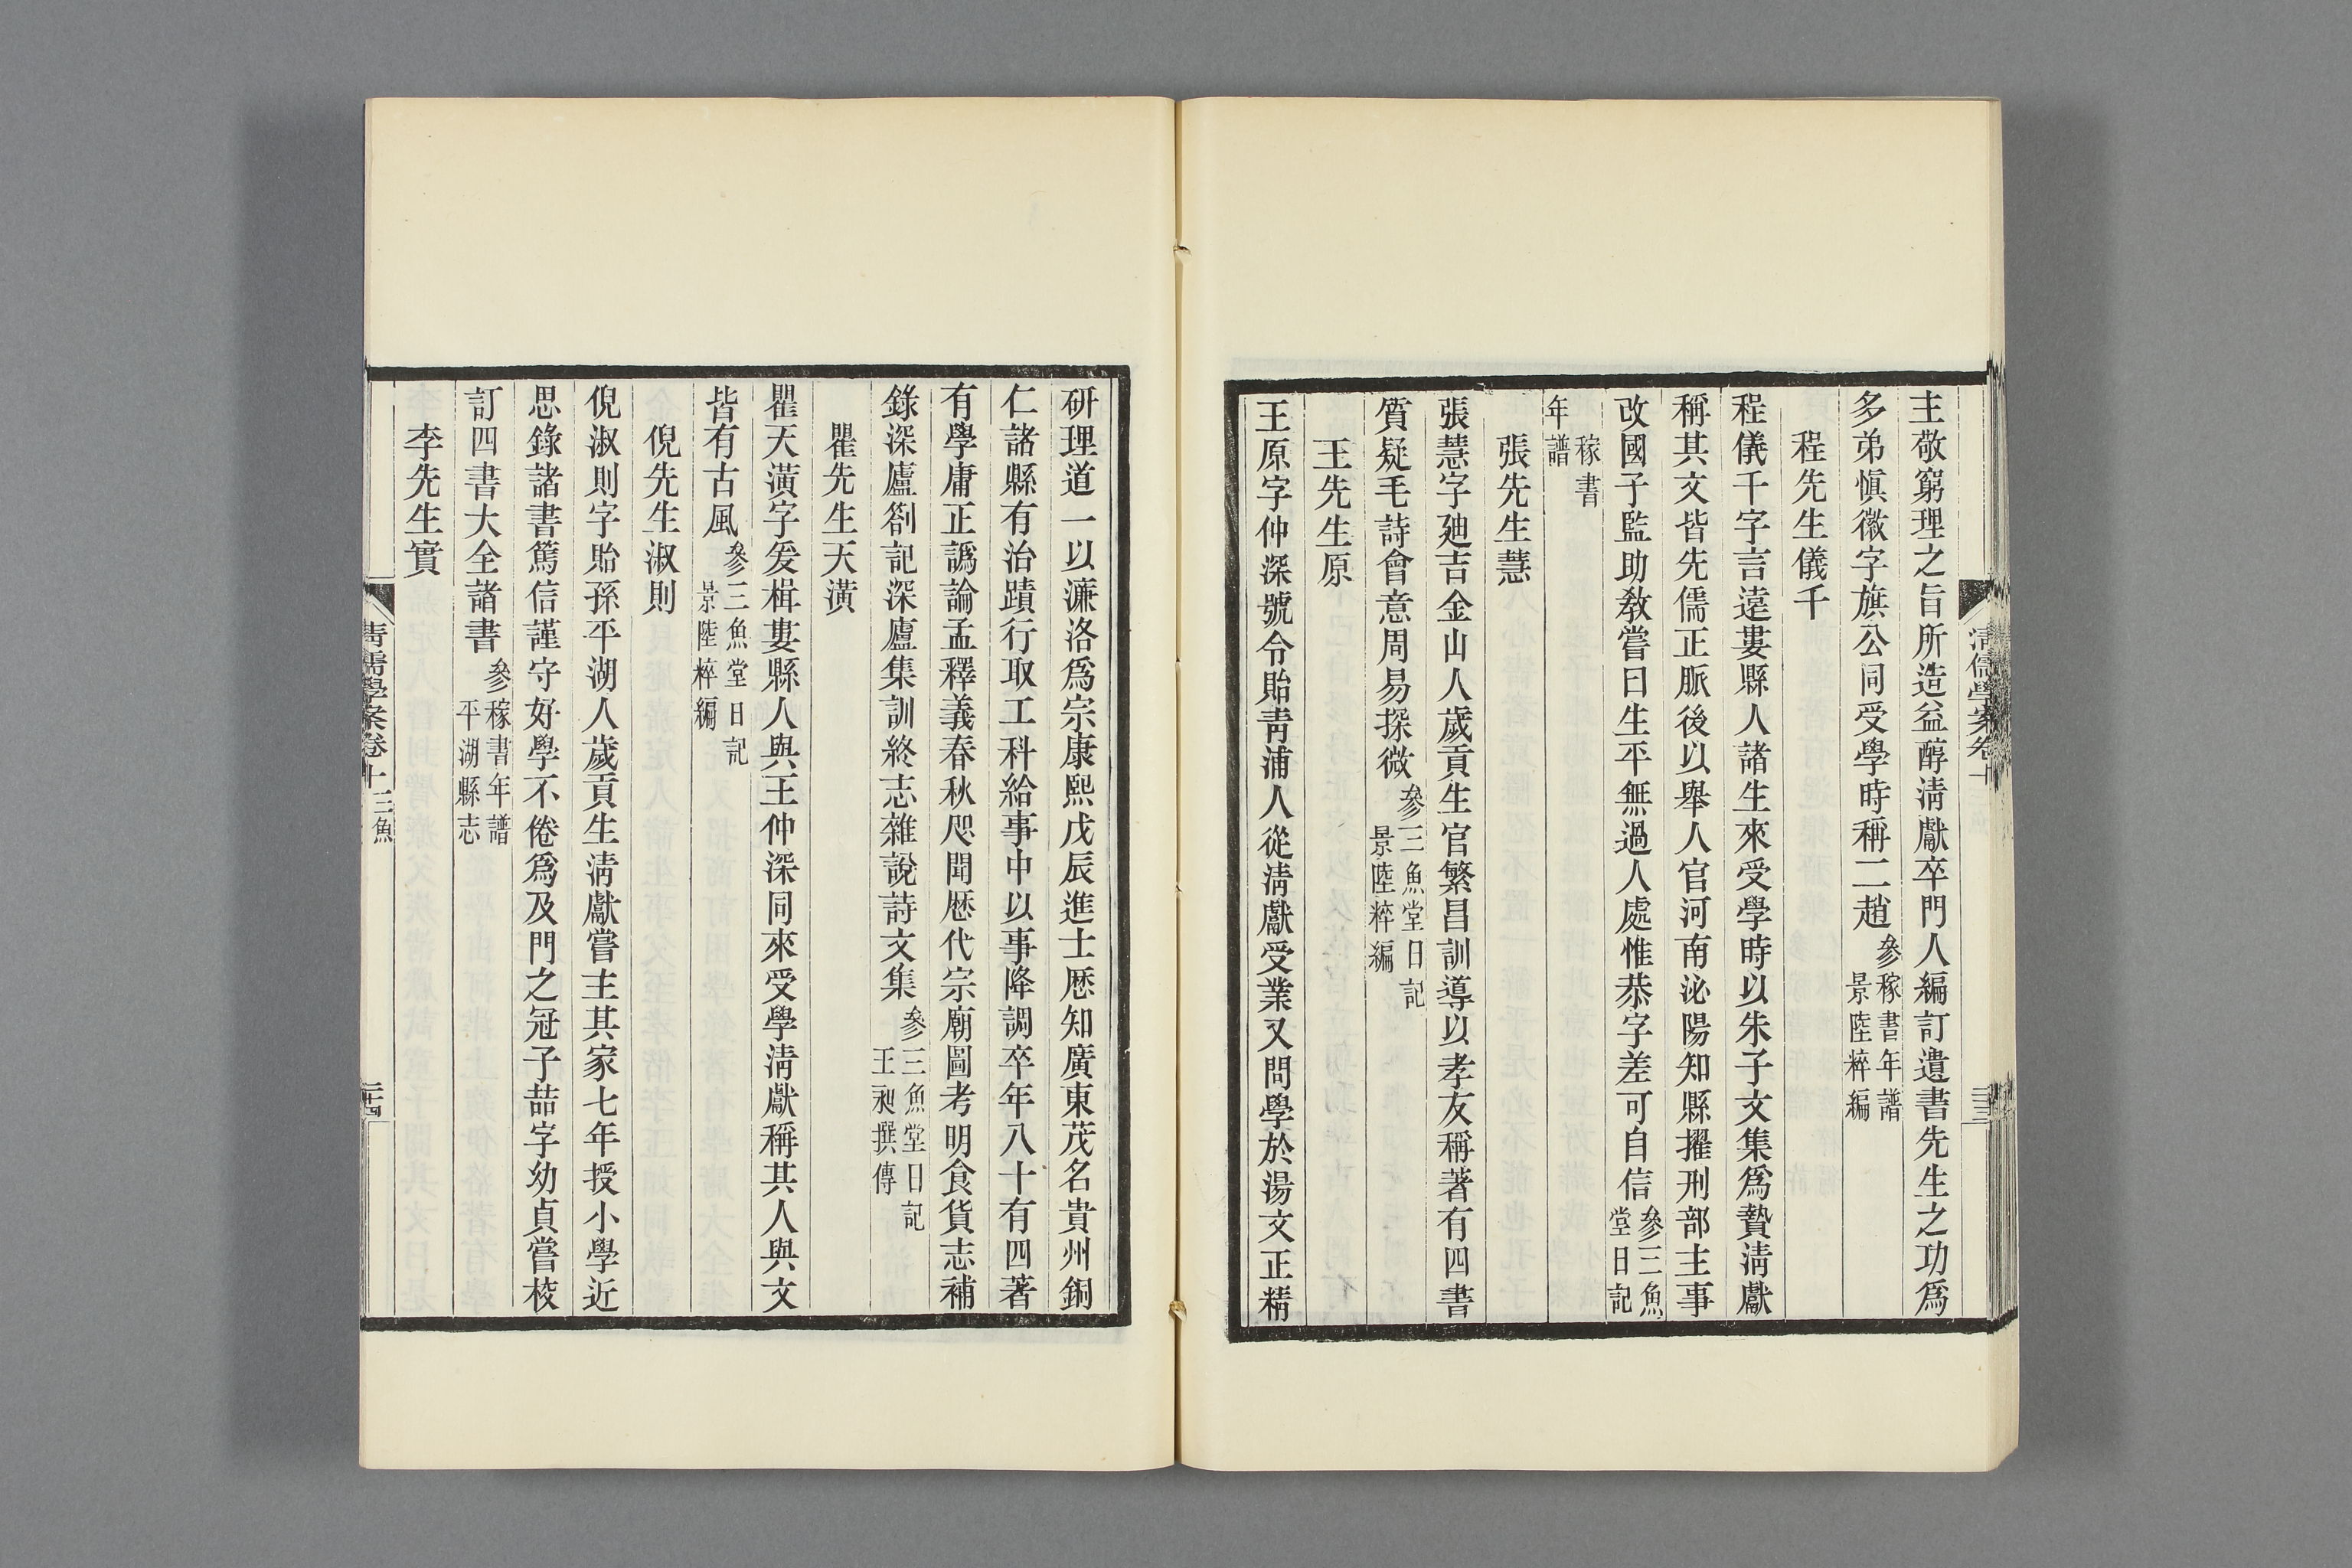 清儒學案卷十
三十三
主敬窮理之旨所造益醇淸獻卒門人編訂遺書先生之功爲
多弟愼徽字旂公同受學時稱二趙參稼書年譜景陸粹編
程先生儀千
程儀千字言遠婁縣人諸生來受學時以朱子文集爲贄淸獻
稱其文皆先儒正脈後以舉人官河南泌陽知縣擢刑部主事
改國子監助敎嘗曰生平無過人處惟恭字差可自信參三魚堂日記
稼書年譜
張先生慧
張慧字廸吉金山人歲貢生官繁昌訓導以孝友稱著有四書
質疑毛詩會意周易探微參三魚堂日記景陸粹編
王先生原
王原字仲深號令貽靑浦人從淸獻受業又問學於湯文正精
研理道一以濂洛爲宗康熙戊辰進士歷知廣東茂名貴州銅
仁諸縣有治蹟行取工科給事中以事降調卒年八十有四著
有學庸正譌論孟釋義春秋咫聞歷代宗廟圖考明食貨志補
錄深廬劄記深廬集訓終志雜說詩文集參三魚堂日記王昶撰傳
瞿先生天潢
瞿天潢字爰楫婁縣人與王仲深同來受學淸獻稱其人與文
皆有古風參三魚堂日記景陸粹編
倪先生淑則
倪淑則字貽孫平湖人歲貢生淸獻嘗主其家七年授小學近
思錄諸書篤信謹守好學不倦爲及門之冠子喆字幼貞嘗校
訂四書大全諸書參稼書年譜平湖縣志
李先生實
清儒學案卷十 三魚
三十四